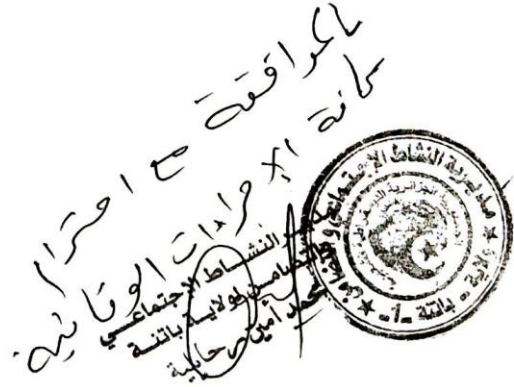 بالموافقة مع احترام
كافة الإجراءات الوقائية
مدير النشاط الاجتماعي
والتضامن لولاية باتنة
محمد أمين رحايلية
مديرية النشاط الإجتماعي و التضامن
ولاية - باتنة -1-
الجمهورية الجزائرية الديمقراطية الشعبية